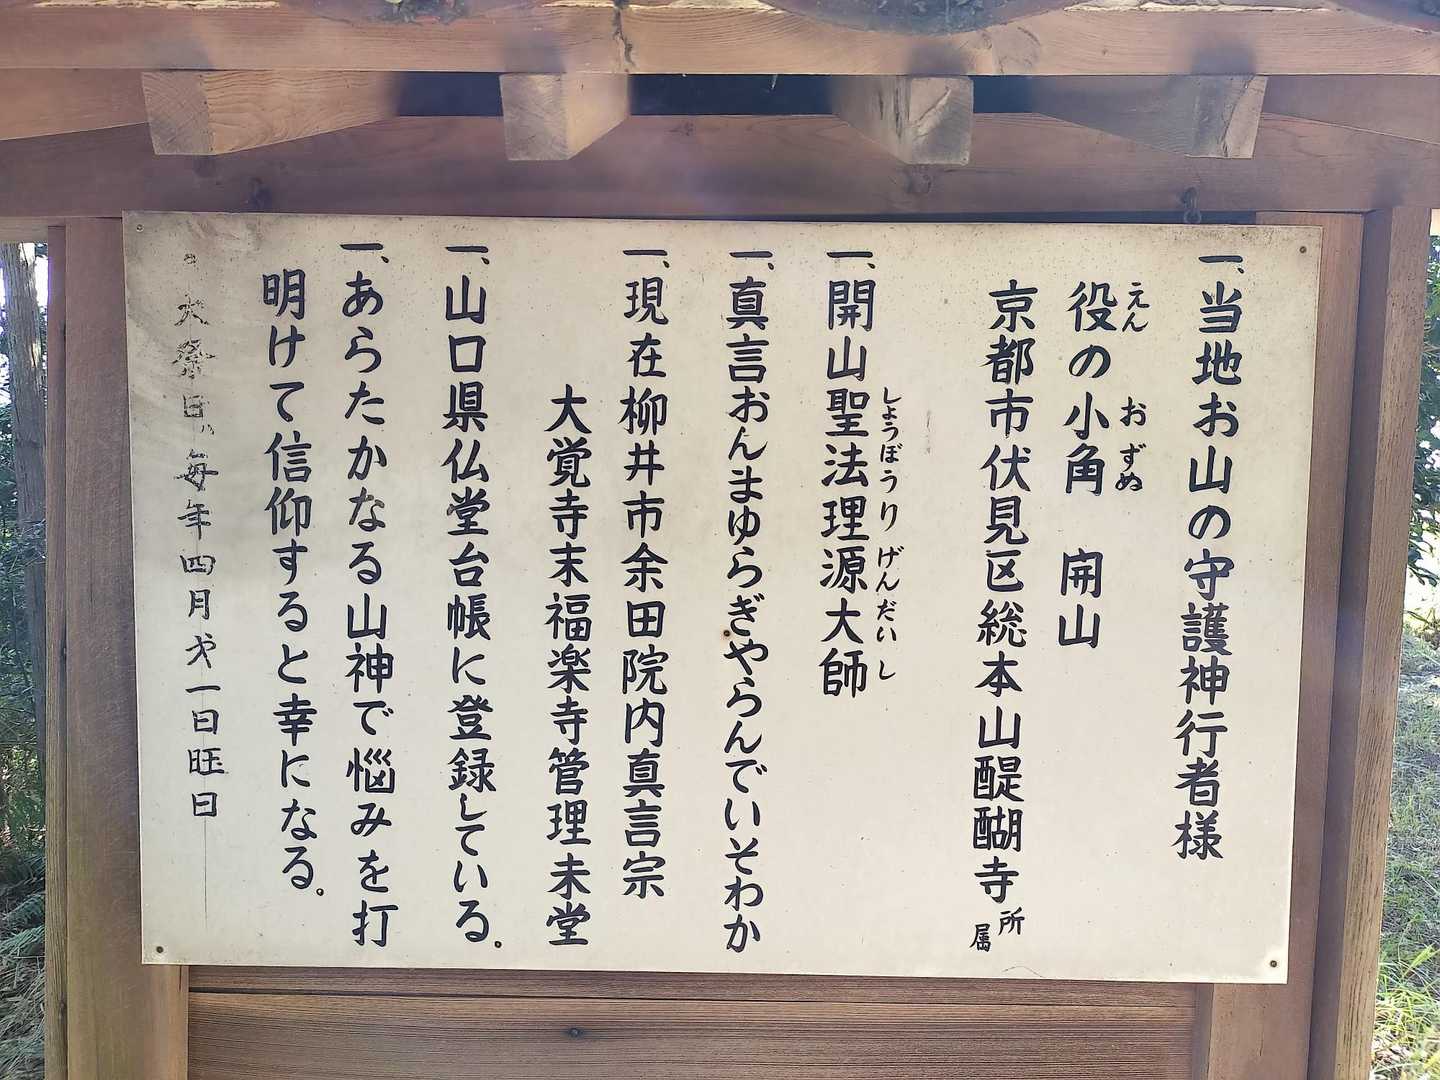 一、当地お山の守護神行者様
役の小角　開山
えん　おずぬ
京都市伏見区総本山醍醐寺所属
一、開山聖法理源大師
しょうぼうりげんだいし
一、真言おんまゆらぎやらんでいそわか
一、現在柳井市余田院内真言宗
大覚寺末福楽寺管理未堂
一、山口県仏堂台帳に登録している。
一、あらたかなる山神で悩みを打
明けて信仰すると幸になる。
大祭日、毎年四月才一日旺日